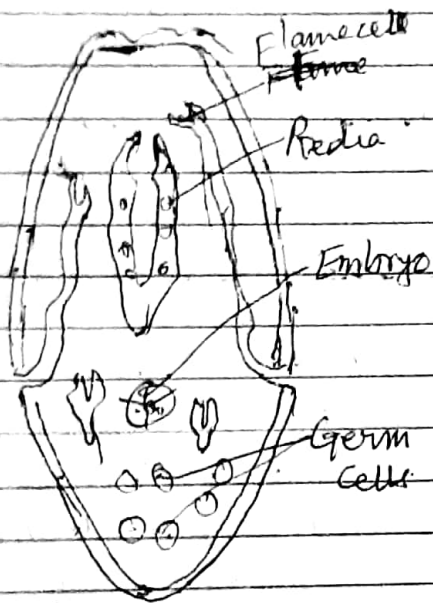 Flamecell
Flame
Redia
Embryo
Germ
Cells